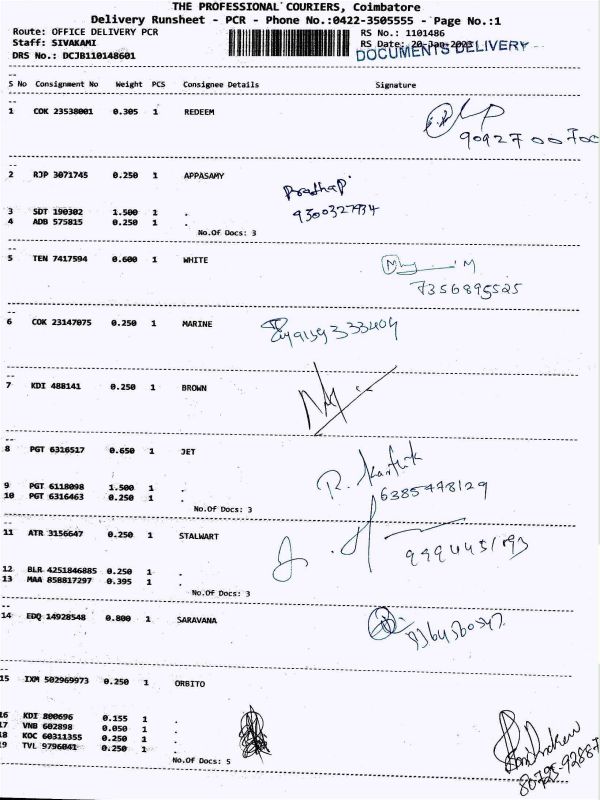 THE PROFESSIONAL COURIERS, Coimbatore
Delivery Runsheet - PCR - Phone No.:0422-3505555 - Page No.:1
Route: OFFICE DELIVERY PCR
Staff: SIVAKAMI
DRS No.: DCJB110148601
RS No.: 1101486
RS Date: 20-Jan-2023
DOCUMENTS DELIVERY
S No Consignment No Weight PCS Consignee Details Signature
1 COK 23538001 0.305 1 REDEEM
9092700700
2 RJP 3071745 0.250 1 APPASAMY
Pradhap
9300327934
3 SDT 190302 1.500 1 .
4 ADB 575815 0.250 1 .
No.Of Docs: 3
5 TEN 7417594 0.600 1 WHITE
7356895525
6 COK 23147075 0.250 1 MARINE
7 KDI 488141 0.250 1 BROWN
8 PGT 6316517 0.650 1 JET
R. Karthik
6385478129
9 PGT 6118098 1.500 1 .
10 PGT 6316463 0.250 1 .
No.Of Docs: 3
11 ATR 3156647 0.250 1 STALWART
12 BLR 4251846885 0.250 1 .
13 MAA 858817297 0.395 1 .
No.Of Docs: 3
14 EDQ 14928548 0.800 1 SARAVANA
15 IXM 502969973 0.250 1 ORBITO
16 KDI 800696 0.155 1 .
17 VNB 602898 0.050 1 .
18 KOC 60311355 0.250 1 .
19 TVL 9796041 0.250 1 .
No.Of Docs: 5
80725-92887